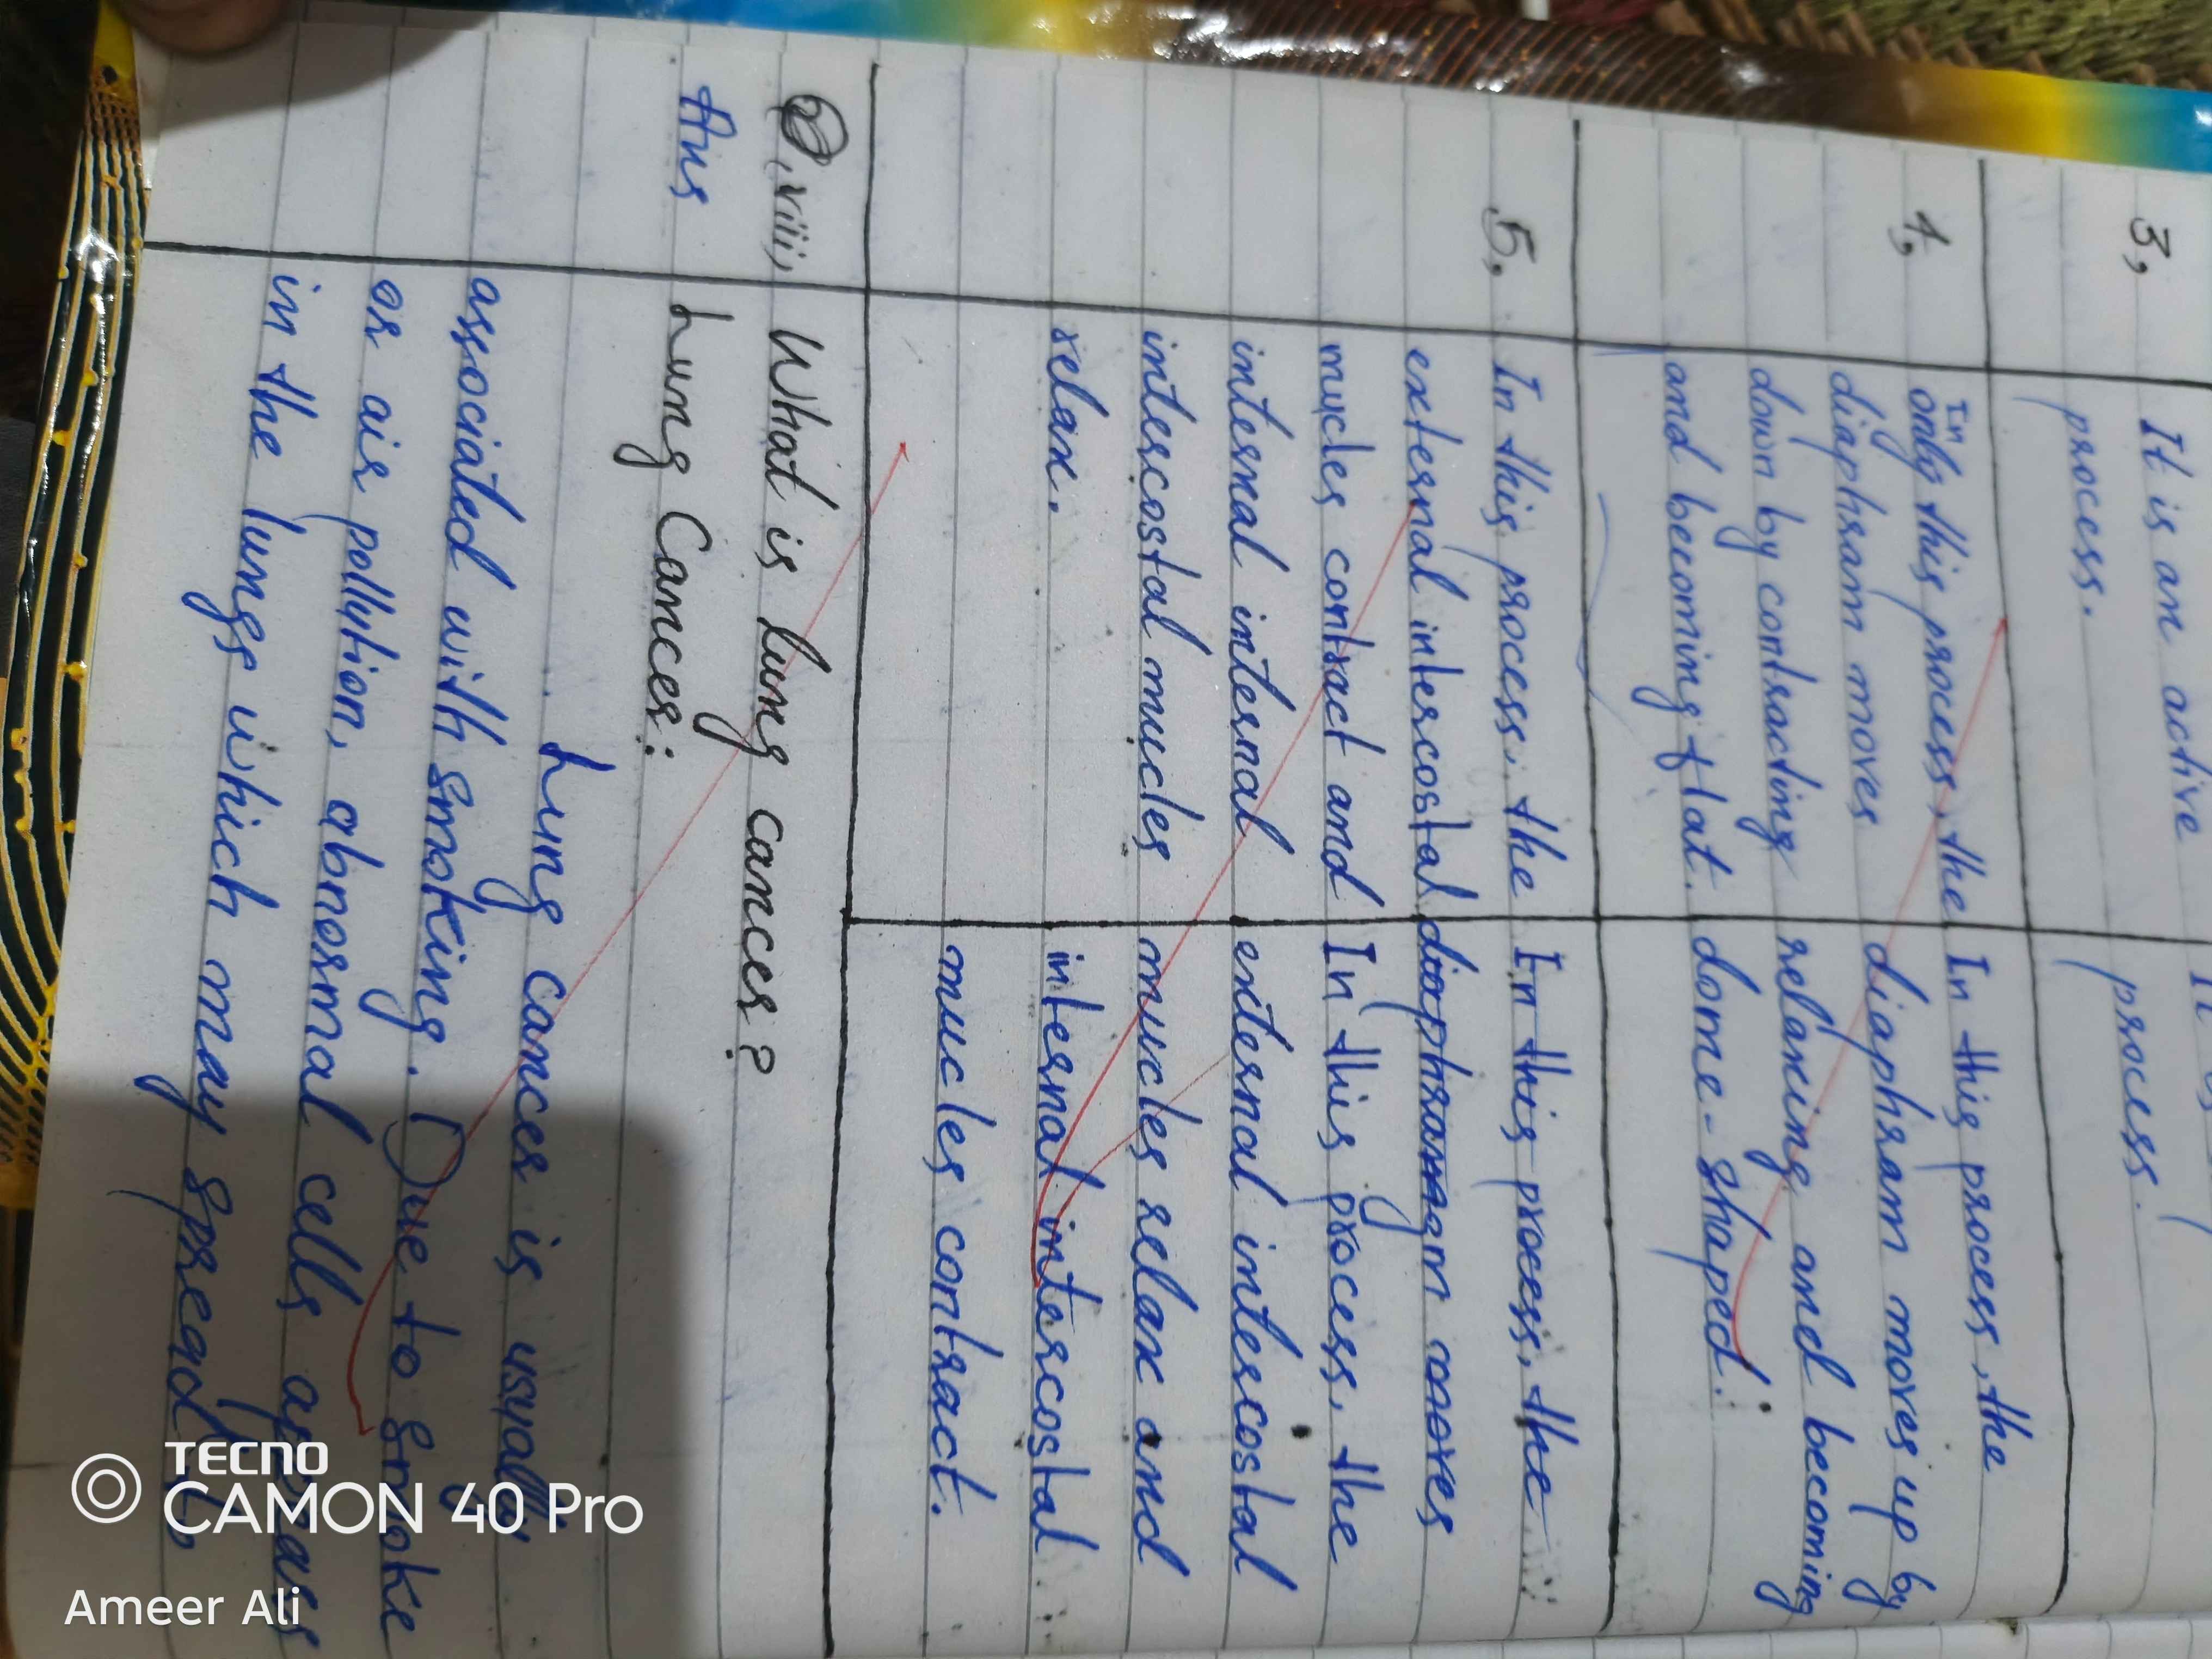 3, It is an active
process.
process.
4, In
only this process, the
diaphram moves
down by contracting
and becoming flat.
In this process, the
diaphram moves up by
relaxing and becoming
dome-shaped.
5, In this process, the
external intercostal
mucles contract and
internal internal
intercostal mucles
relax.
In this process, the
diaphragm moves
In this process, the
external intercostal
mucles relax and
internal intercostal
mucles contract.
Q, viii, What is lung cancer?
Ans Lung Cancer:
Lung cancer is usually
associated with smoking. Due to smoke
or air pollution, abnormal cells appears
in the lungs which may spread to
TECNO
CAMON 40 Pro
Ameer Ali